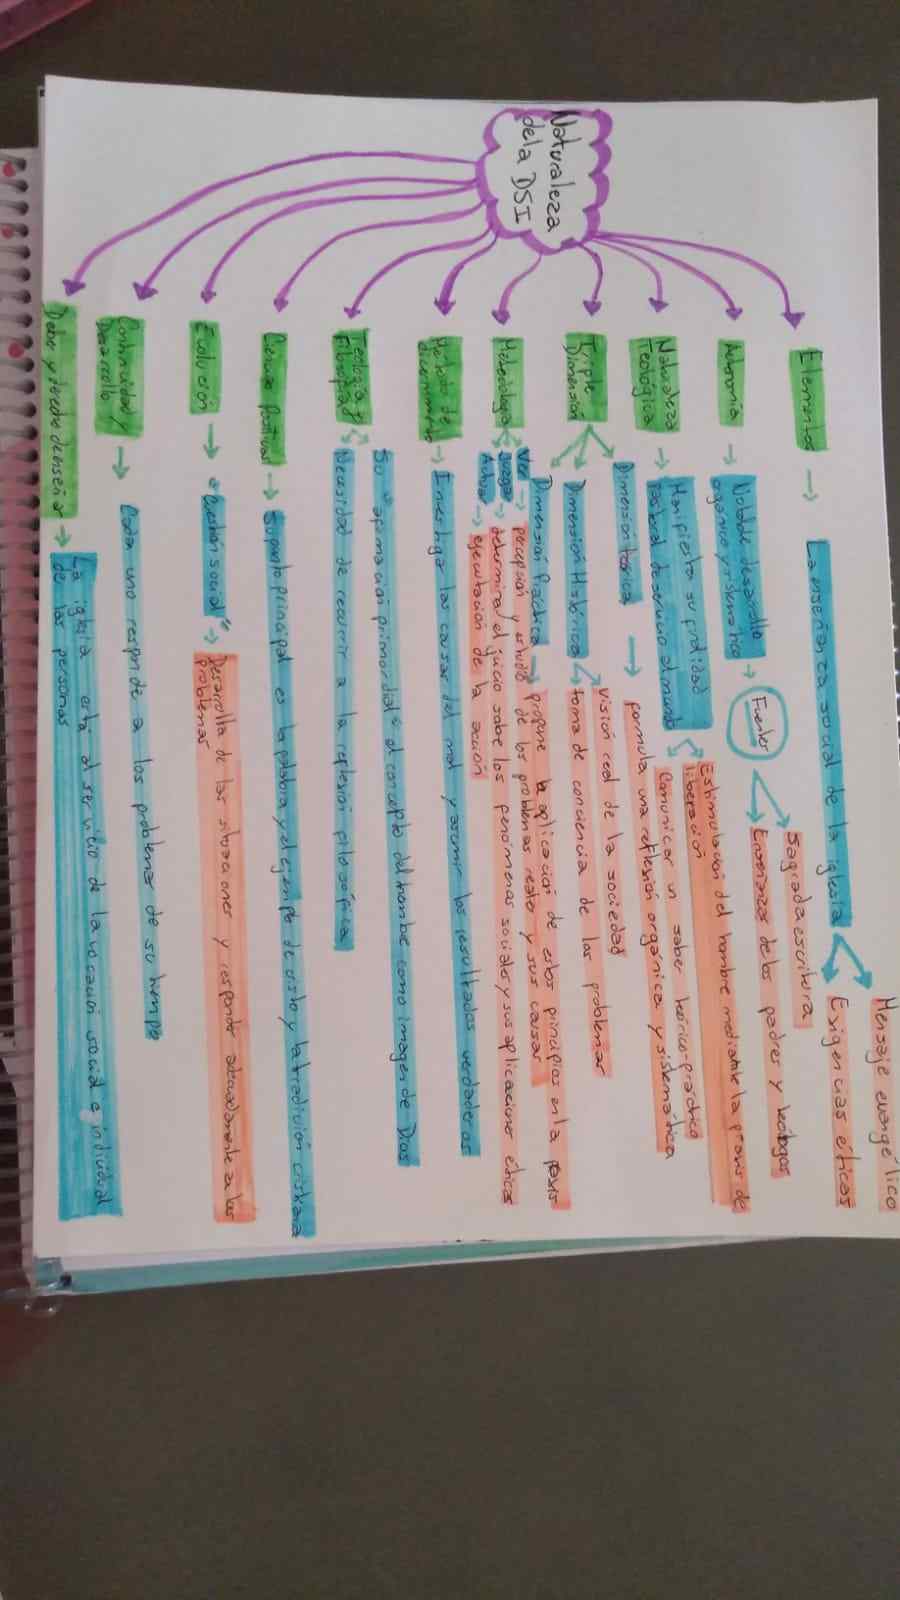 Naturaleza
de la DSI
Elementos
La enseñanza social de la iglesia
Mensaje evangélico
Exigencias éticas
Autonomía
Notable desarrollo
organico y sistematico
Fuentes
Sagrada escritura
Enseñanzas de los padres y teólogos
Naturaleza
Teologica
Manifiesta su finalidad
pastoral de servicio al mundo
Estimulación del hombre mediante la praxis de
liberación
Comunicar un saber teórico-práctico
Triple
Dimensión
Dimensión teorica
formula una reflexión orgánica y sistemática
Dimensión Histórica
visión real de la sociedad
toma de conciencia de los problemas
Dimensión Práctica
propone la aplicación de estos principios en la praxis
Metodologia
Ver
percepción y estudio de los problemas reales y sus causas
Juzgar
determina el juicio sobre los fenómenos sociales y sus aplicaciones éticas
Actuar
ejecutación de la acción
Método de
discernimiento
Investiga las causas del mal y asumir los resultados verdaderos
Teologia y
Filosofia
Su "afirmación primordial" el concepto del hombre como imagen de Dios
Necesidad de recurrir a la reflexión filosófica
Ciencias Positivas
Su punto principal es la palabra y el ejemplo de cristo y la tradición cristiana
Evolución
"Cuestión social"
Desarrollo de las situaciones y responder adecuadamente a los
problemas
Continuidad y
Desarrollo
Cada uno responde a los problemas de su tiempo
Deber y derecho de enseñar
La iglesia está al servicio de la vocación social e individual
de las personas